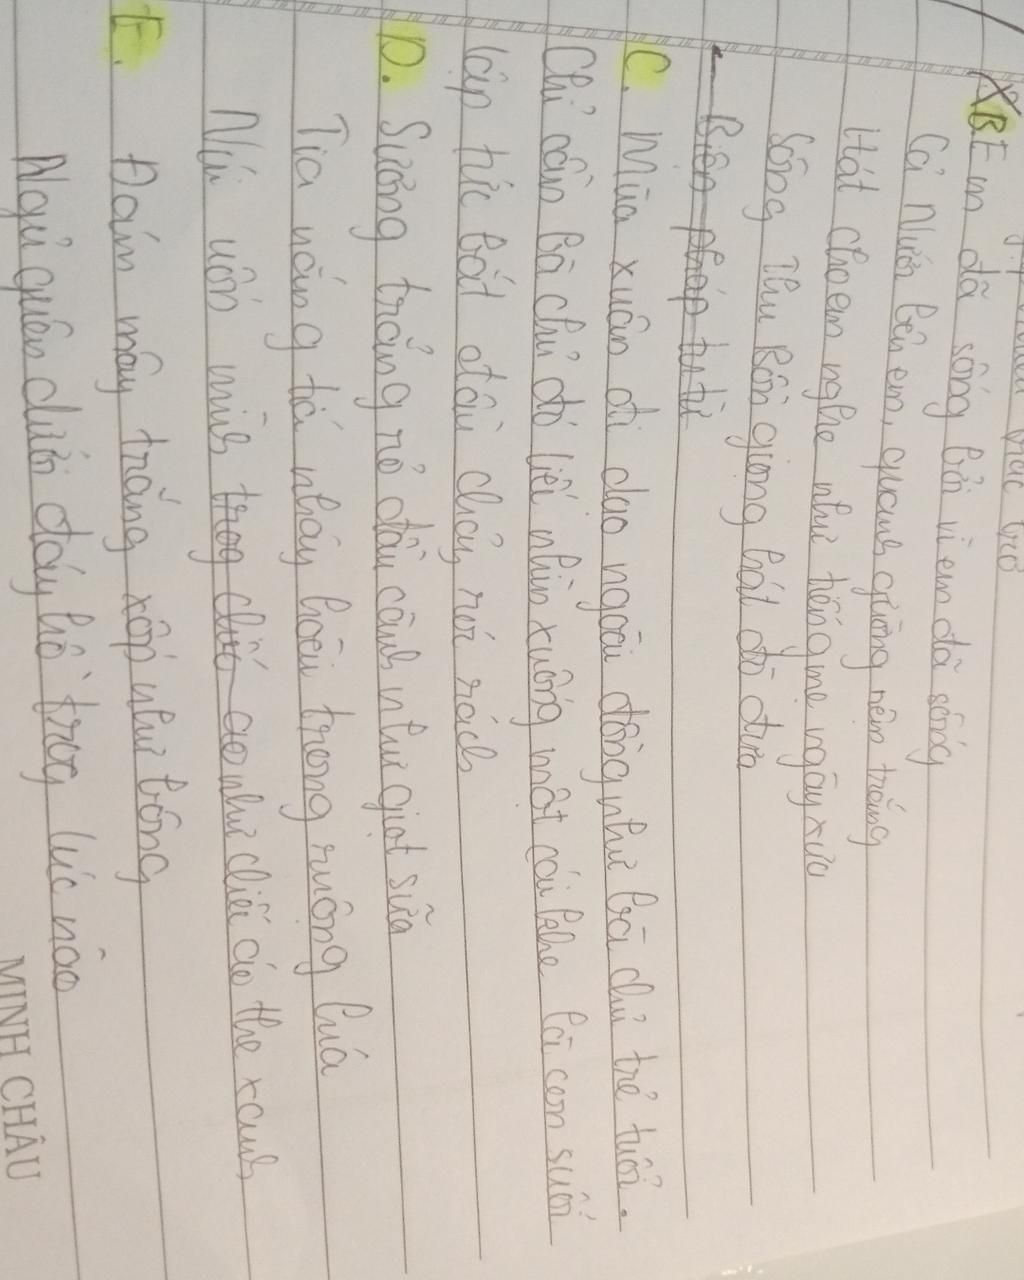 B Em đã sống bởi vì em đã sống
Cả Nước bên em, quanh giường nệm trắng
Hát cho em nghe như tiếng mẹ ngày xưa
Sông Thu Bồn giọng hát đò đưa
Biện pháp tu từ
C. Mùa xuân đi dạo ngoài đồng như bà chủ trẻ tuổi.
Chỉ cần bà chủ đó liếc nhìn xuống một cái khe là con suối
lập tức bắt đầu chảy róc rách
D. Sương trắng rỏ đầu cành như giọt sữa
Tia nắng tía nháy hoài trong ruộng lúa
Núi uốn mình trog chiếc áo như chiếc áo the xanh
E. Đám mây trắng xốp như bông
Ngủ quên dưới đáy hồ trong lúc nào
MINH CHÂU